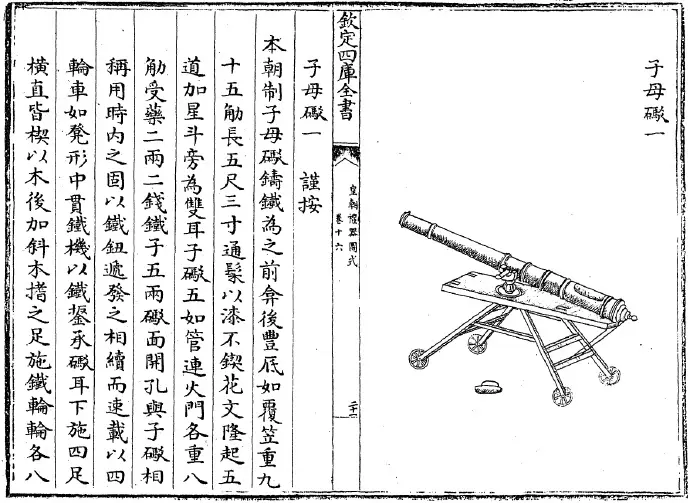 子母礮一
欽定四庫全書
皇朝禮器圖式
卷十六
二十一
子母礮一 謹按
本朝制子母礮鑄鐵為之前弇後豐底如覆笠重九
十五觔長五尺三寸通髹以漆不鍥花文隆起五
道加星斗旁為雙耳子礮五如管連火門各重八
觔受藥二兩二錢鐵子五兩礮面開孔與子礮相
稱用時內之固以鐵鈕遞發之相續而速載以四
輪車如凳形中貫鐵機以鐵鋬承礮耳下施四足
橫直皆楔以木後加斜木搘之足施鐵輪輪各八